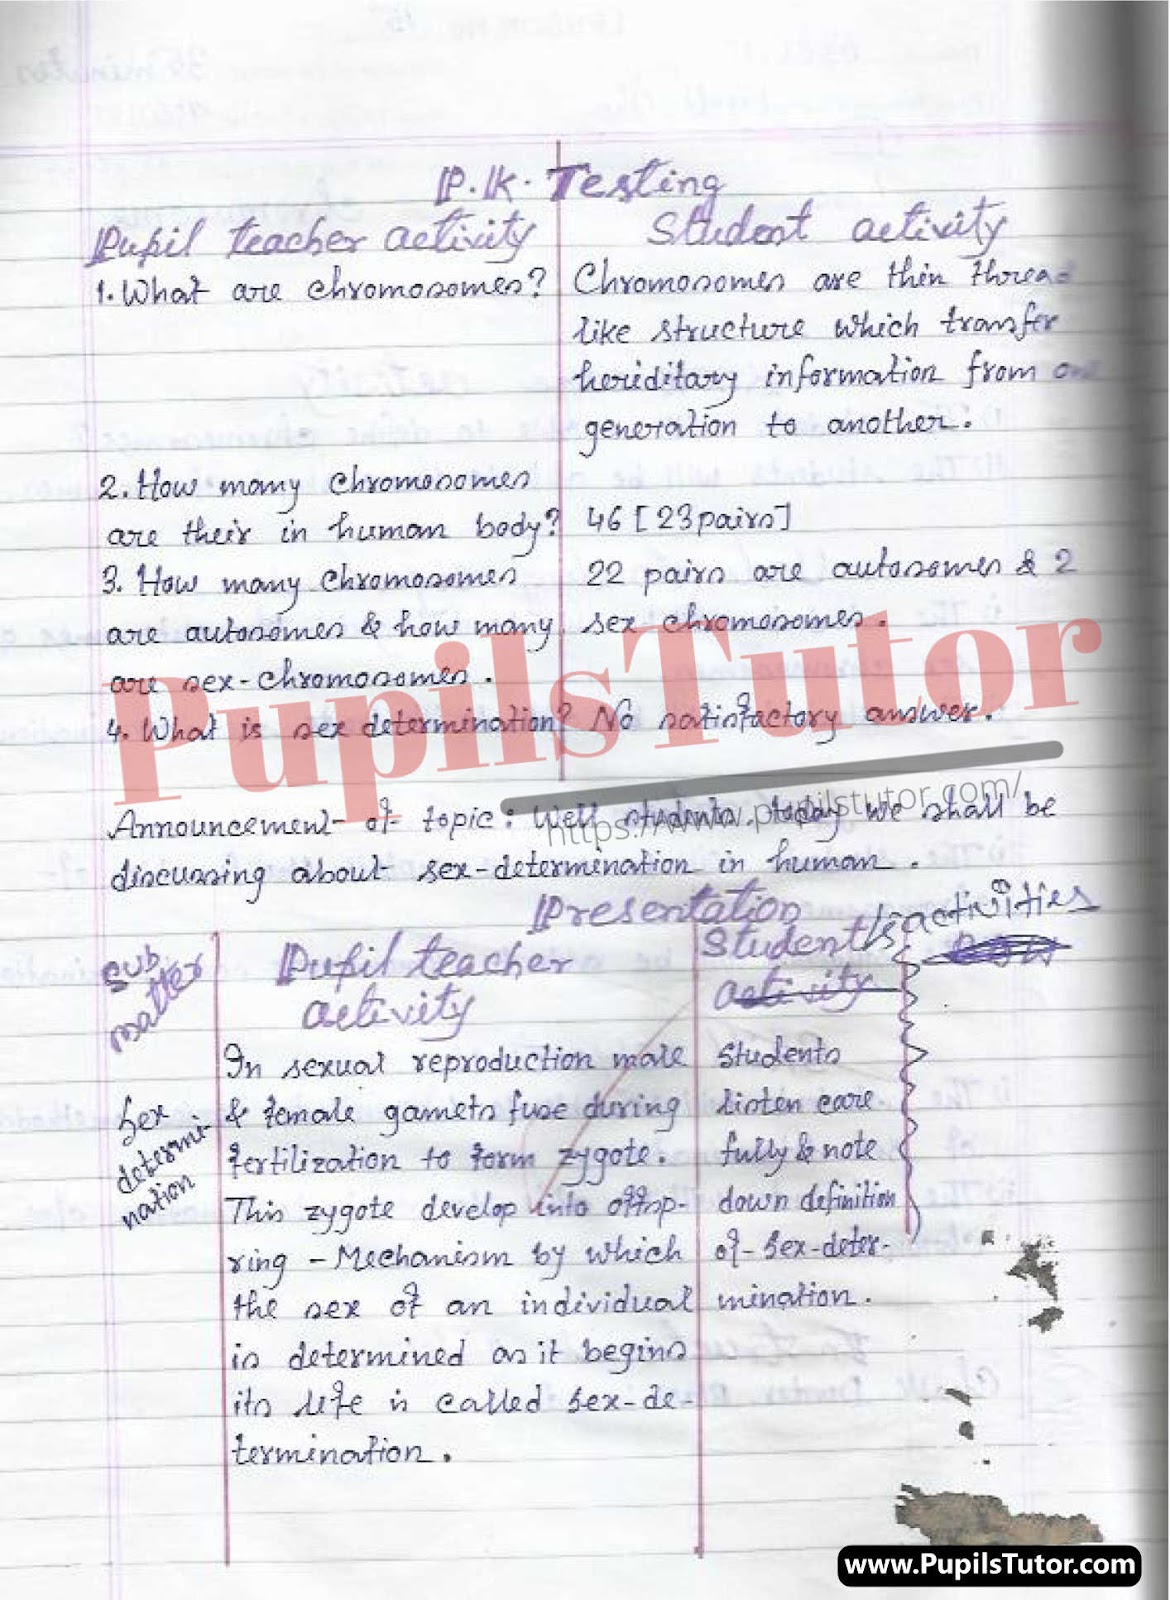 P.K. Testing
Pupil teacher activity
Student activity
1. What are chromosomes?
Chromosomes are thin thread
like structure which transfer
heriditary information from one
generation to another.
2. How many chromosomes
are their in human body?
46 [23 pairs]
3. How many chromosomes
are autosomes & how many
are sex-chromosomes.
22 pairs are autosomes & 2
sex chromosomes.
4. What is sex determination?
No satisfactory answer.
PupilsTutor
https://www.pupilstutor.com/
Announcement of topic: Well students today we shall be
discussing about sex-determination in human.
Presentation
Sub
matter
Pupil teacher
activity
Student's activities
activity
Sex
determi-
nation
In sexual reproduction male
& female gamets fuse during
fertilization to form zygote.
This zygote develop into offsp-
ring - Mechanism by which
the sex of an individual
is determined as it begins
its life is called sex-de-
termination.
Students
listen care
fully & note
down definition
of sex-deter-
mination.
www.PupilsTutor.com